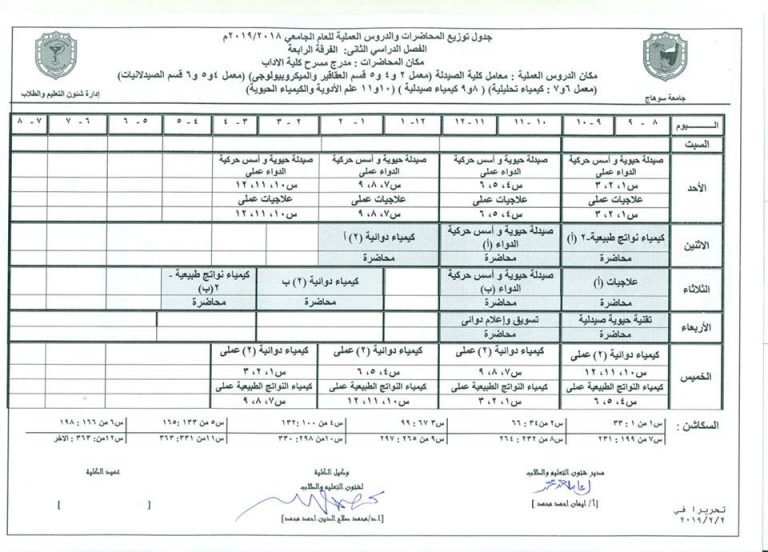 جدول توزيع المحاضرات والدروس العملية للعام الجامعي ٢٠١٩/٢٠١٨م
الفصل الدراسي الثانى: الفرقة الرابعة
مكان المحاضرات : مدرج مسرح كلية الاداب
مكان الدروس العملية : معامل كلية الصيدلة (معمل ٢ و٤ و ٥ قسم العقاقير والميكروبيولوجى) (معمل ٤و ٥ و ٦ قسم الصيدلانيات)
(معمل ٦و ٧ : كيمياء تحليلية) ( ٨و٩ كيمياء صيدلية ) (١٠و١١ علم الأدوية والكيمياء الحيوية)
جامعة سوهاج
إدارة شئون التعليم والطلاب
اليوم ٨ - ٩ ٩ -١٠ ١٠ - ١١ ١١ -١٢ ١٢-١ ١ - ٢ ٢ - ٣ ٣ - ٤ ٤ - ٥ ٥ - ٦ ٦ - ٧ ٧ - ٨
السبت
الأحد
صيدلة حيوية و أسس حركية الدواء عملى صيدلة حيوية و أسس حركية الدواء عملى صيدلة حيوية و أسس حركية الدواء عملى صيدلة حيوية و أسس حركية الدواء عملى
س١، ٢، ٣ س٤، ٥، ٦ س٧، ٨، ٩ س١٠، ١١، ١٢
علاجيات عملى علاجيات عملى علاجيات عملى علاجيات عملى
س١، ٢، ٣ س٤، ٥، ٦ س٧، ٨، ٩ س١٠، ١١، ١٢
الاثنين
كيمياء نواتج طبيعية-٢ (أ) صيدلة حيوية و أسس حركية الدواء (أ) كيمياء دوائية (٢) أ
محاضرة محاضرة محاضرة
الثلاثاء
علاجيات (أ) صيدلة حيوية و أسس حركية الدواء (ب) كيمياء دوائية (٢) ب كيمياء نواتج طبيعية - ٢(ب)
محاضرة محاضرة محاضرة محاضرة
الأربعاء
تقنية حيوية صيدلية تسويق وإعلام دوائى
محاضرة محاضرة
الخميس
كيمياء دوائية (٢) عملى كيمياء دوائية (٢) عملى كيمياء دوائية (٢) عملى كيمياء دوائية (٢) عملى
س١٠، ١١، ١٢ س٧، ٨، ٩ س٤، ٥، ٦ س١، ٢، ٣
كيمياء النواتج الطبيعية عملى كيمياء النواتج الطبيعية عملى كيمياء النواتج الطبيعية عملى كيمياء النواتج الطبيعية عملى
س٤، ٥، ٦ س١، ٢، ٣ س١٠، ١١، ١٢ س٧، ٨، ٩
السكاشن : س١ من ١ : ٣٣ س٢ من ٣٤ : ٦٦ س٣ ٦٧: ٩٩ س٤ من ١٠٠ : ١٣٢ س٥ من ١٣٣ : ١٦٥ س٦ من ١٦٦ : ١٩٨
س٧ من ١٩٩ : ٢٣١ س٨ من ٢٣٢ : ٢٦٤ س٩ من ٢٦٥ : ٢٩٧ س١٠ من ٢٩٨ : ٣٣٠ س١١من ٣٣١ :٣٦٣ س١٢من: ٣٦٣: الاخر
مدير شئون التعليم والطلاب
[أ/ ايمان احمد محمد ]
وكيل الكلية
لشئون التعليم والطلاب
[ا.د/محمد صلاح الدين احمد محمد]
عميد الكلية
[ ]
تحريرا في
٢٠١٩/٢/٢